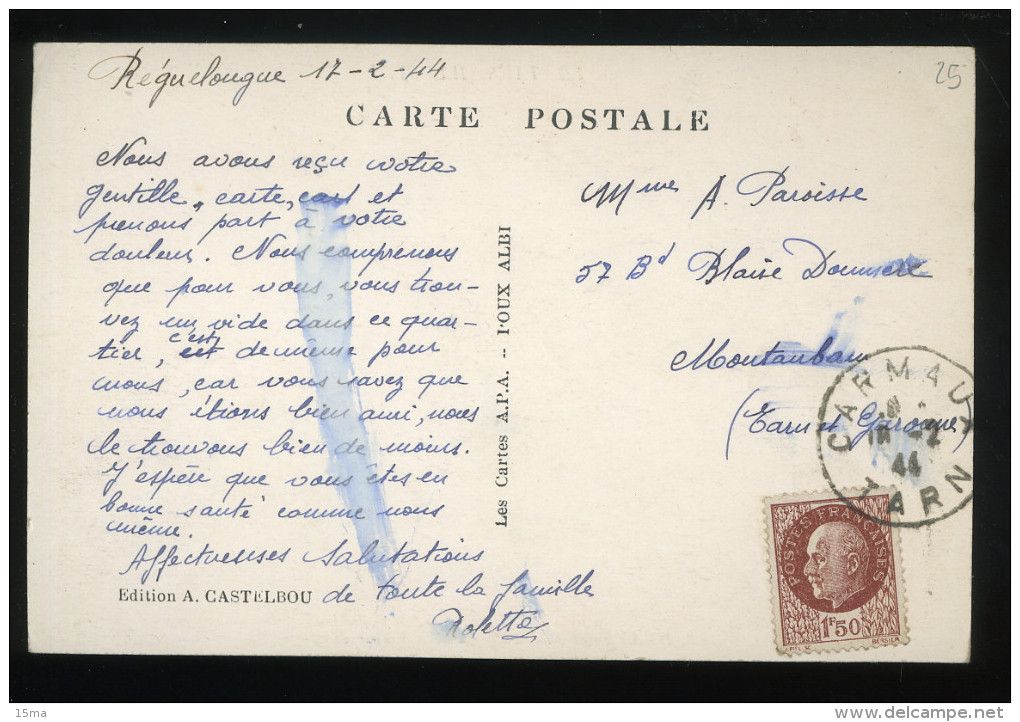 Réguelongue 17-2-44
25
CARTE POSTALE
Nous avons reçu votre
gentille carte, et
prenons part à votre
douleur. Nous comprenons
que pour vous, vous trou-
vez un vide dans ce quar-
tier, c'est de même pour
nous, car vous savez que
nous étions bien ami, nous
le trouvons bien de moins.
J'espère que vous êtes en
bonne santé comme nous
même.
Affectueuses Salutations
de toute la famille
Rolette
Edition A. CASTELBOU
Les Cartes A.P.A. -- POUX ALBI
Mme A. Paroisse
57 Bd Blaise Doumerc
Montauban
(Tarn et Garonne)
CARMAUX
18 -2
44
TARN
POSTES FRANÇAISES
1F50
15ma
www.delcampe.net